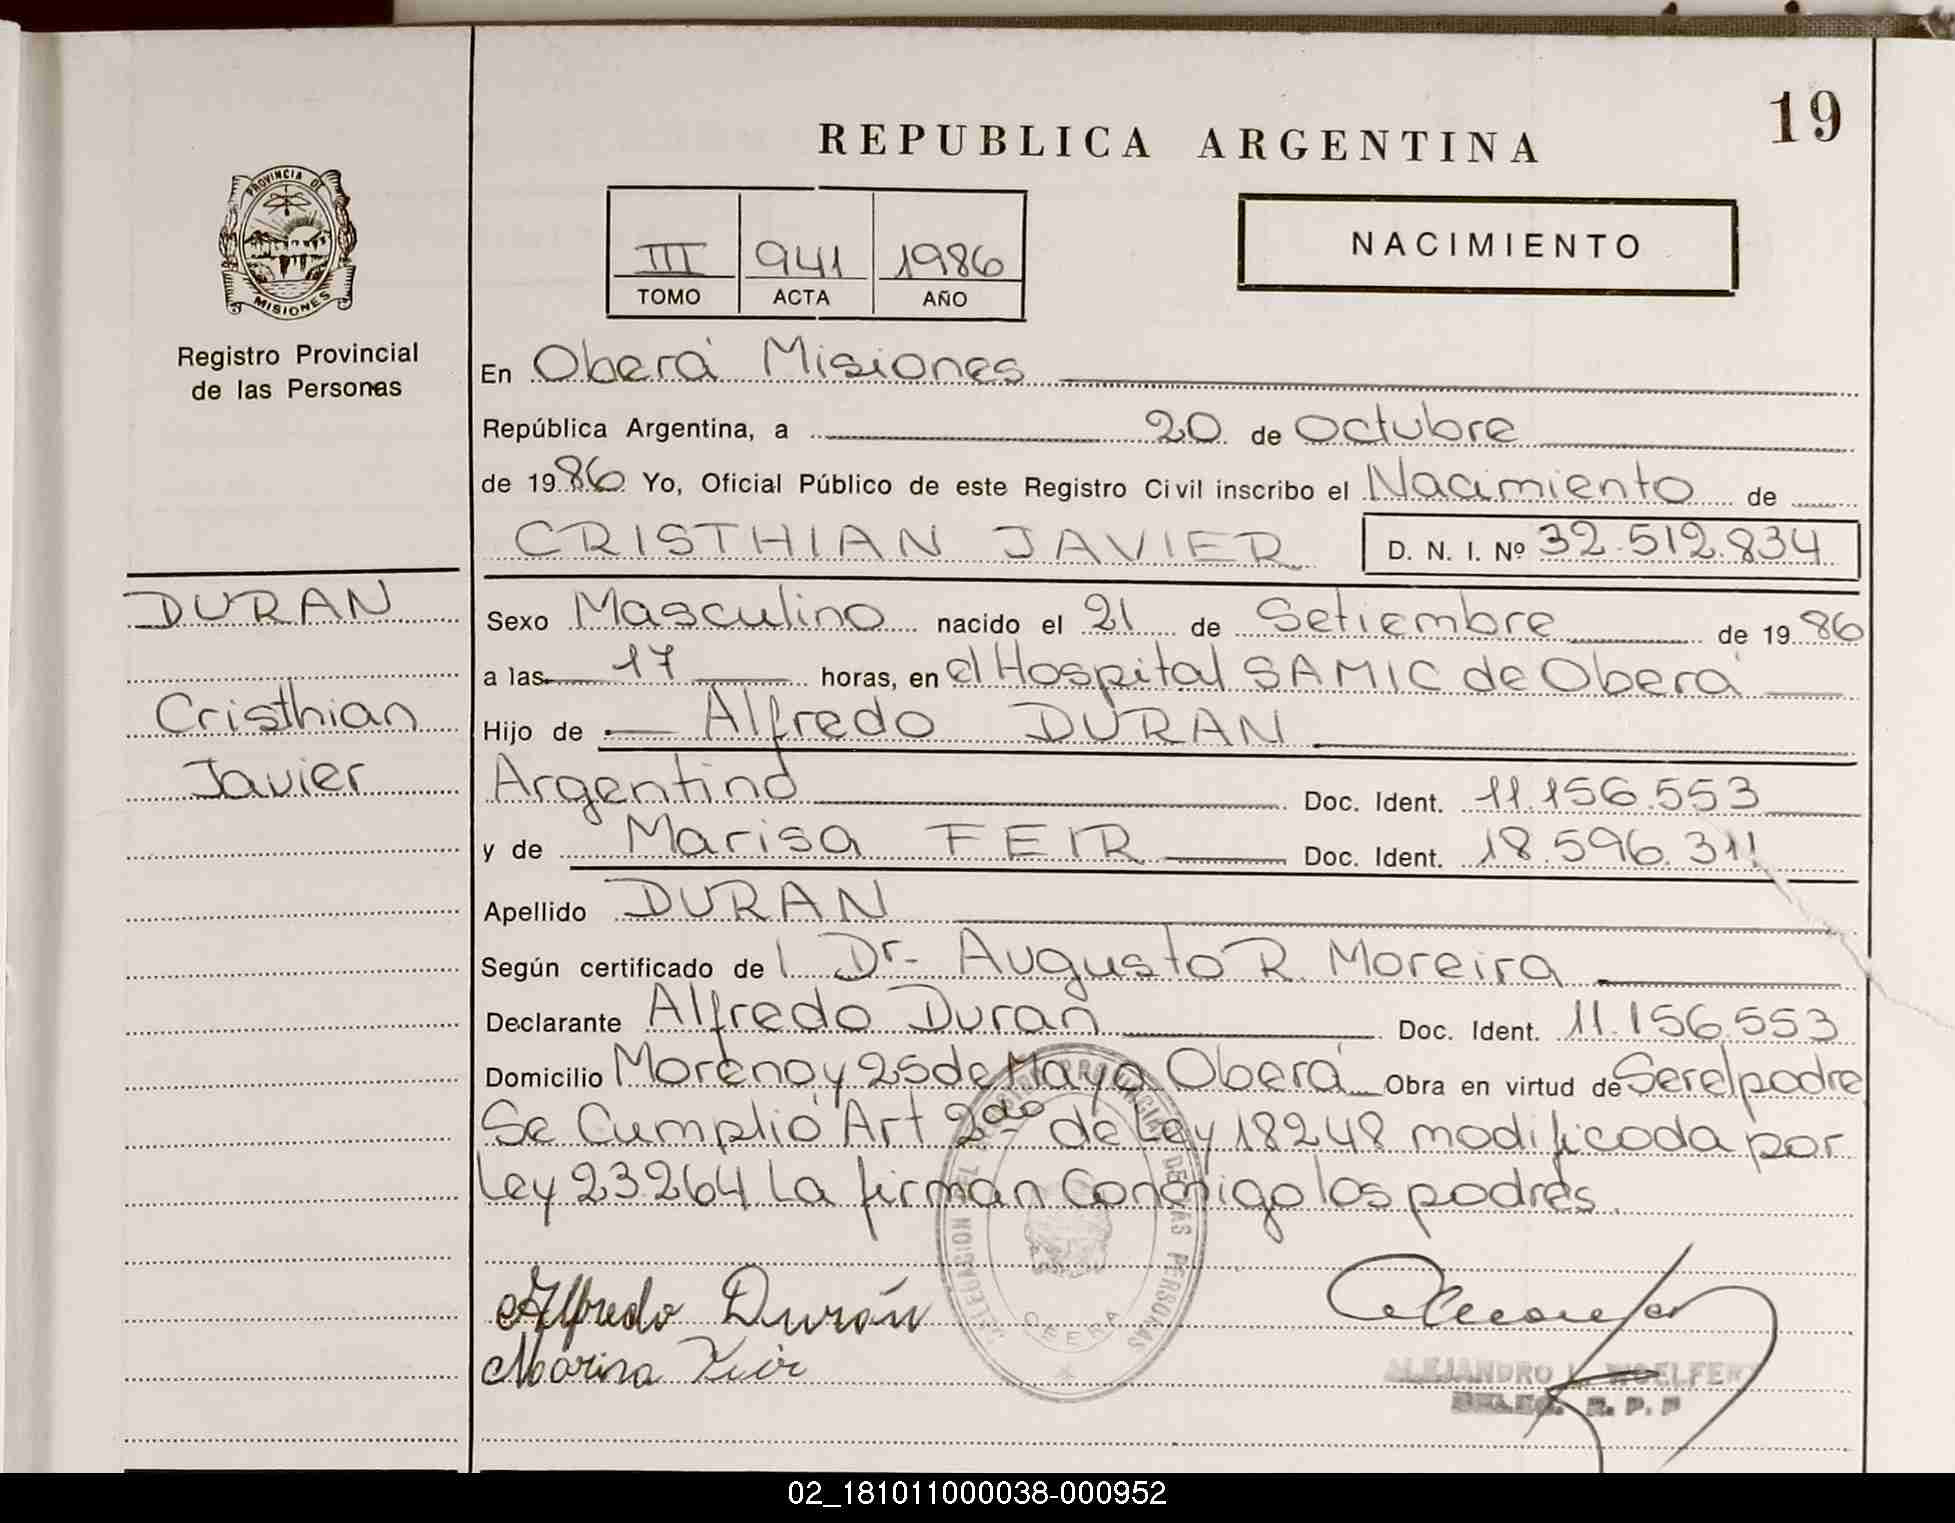 19
REPUBLICA ARGENTINA
PROVINCIA DE
MISIONES
Registro Provincial
de las Personas
III 941 1986
TOMO ACTA AÑO
NACIMIENTO
En Oberá Misiones
República Argentina, a 20 de Octubre
de 1986 Yo, Oficial Público de este Registro Civil inscribo el Nacimiento de
CRISTHIAN JAVIER D. N. I. Nº 32.512.834
DURAN
Cristhian
Javier
Sexo Masculino nacido el 21 de Setiembre de 1986
a las 17 horas, en el Hospital SAMIC de Oberá
Hijo de Alfredo DURAN
Argentino Doc. Ident. 11.156.553
y de Marisa FEIR Doc. Ident. 18.596.311
Apellido DURAN
Según certificado del Dr. Augusto R. Moreira
Declarante Alfredo Duran Doc. Ident. 11.156.553
Domicilio Moreno y 25 de Mayo Oberá Obra en virtud de Ser el padre
Se Cumplió Art 2do de Ley 18248 modificada por
Ley 23.264 La firman Conmigo los padres.
Alfredo Durán
Feir
DELEGACION DEL REGISTRO PROVINCIAL DE LAS PERSONAS
ALEJANDRO L. WOELFERT
DELEG. R. P. P
02_181011000038-000952